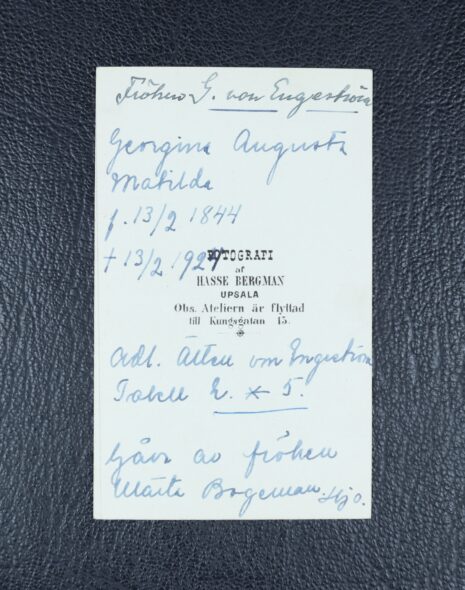 Fröken G. von Engeström
Georgina Augusta
Matilda
f. 13/2 1844
† 13/2 1927
FOTOGRAFI
af
HASSE BERGMAN
UPSALA
Obs. Ateliern är flyttad
till Kungsgatan 15.
Adl. Ätten von Engeström
Tabell 2. * 5.
Gåva av fröken
Märta Bogeman. Hjo.